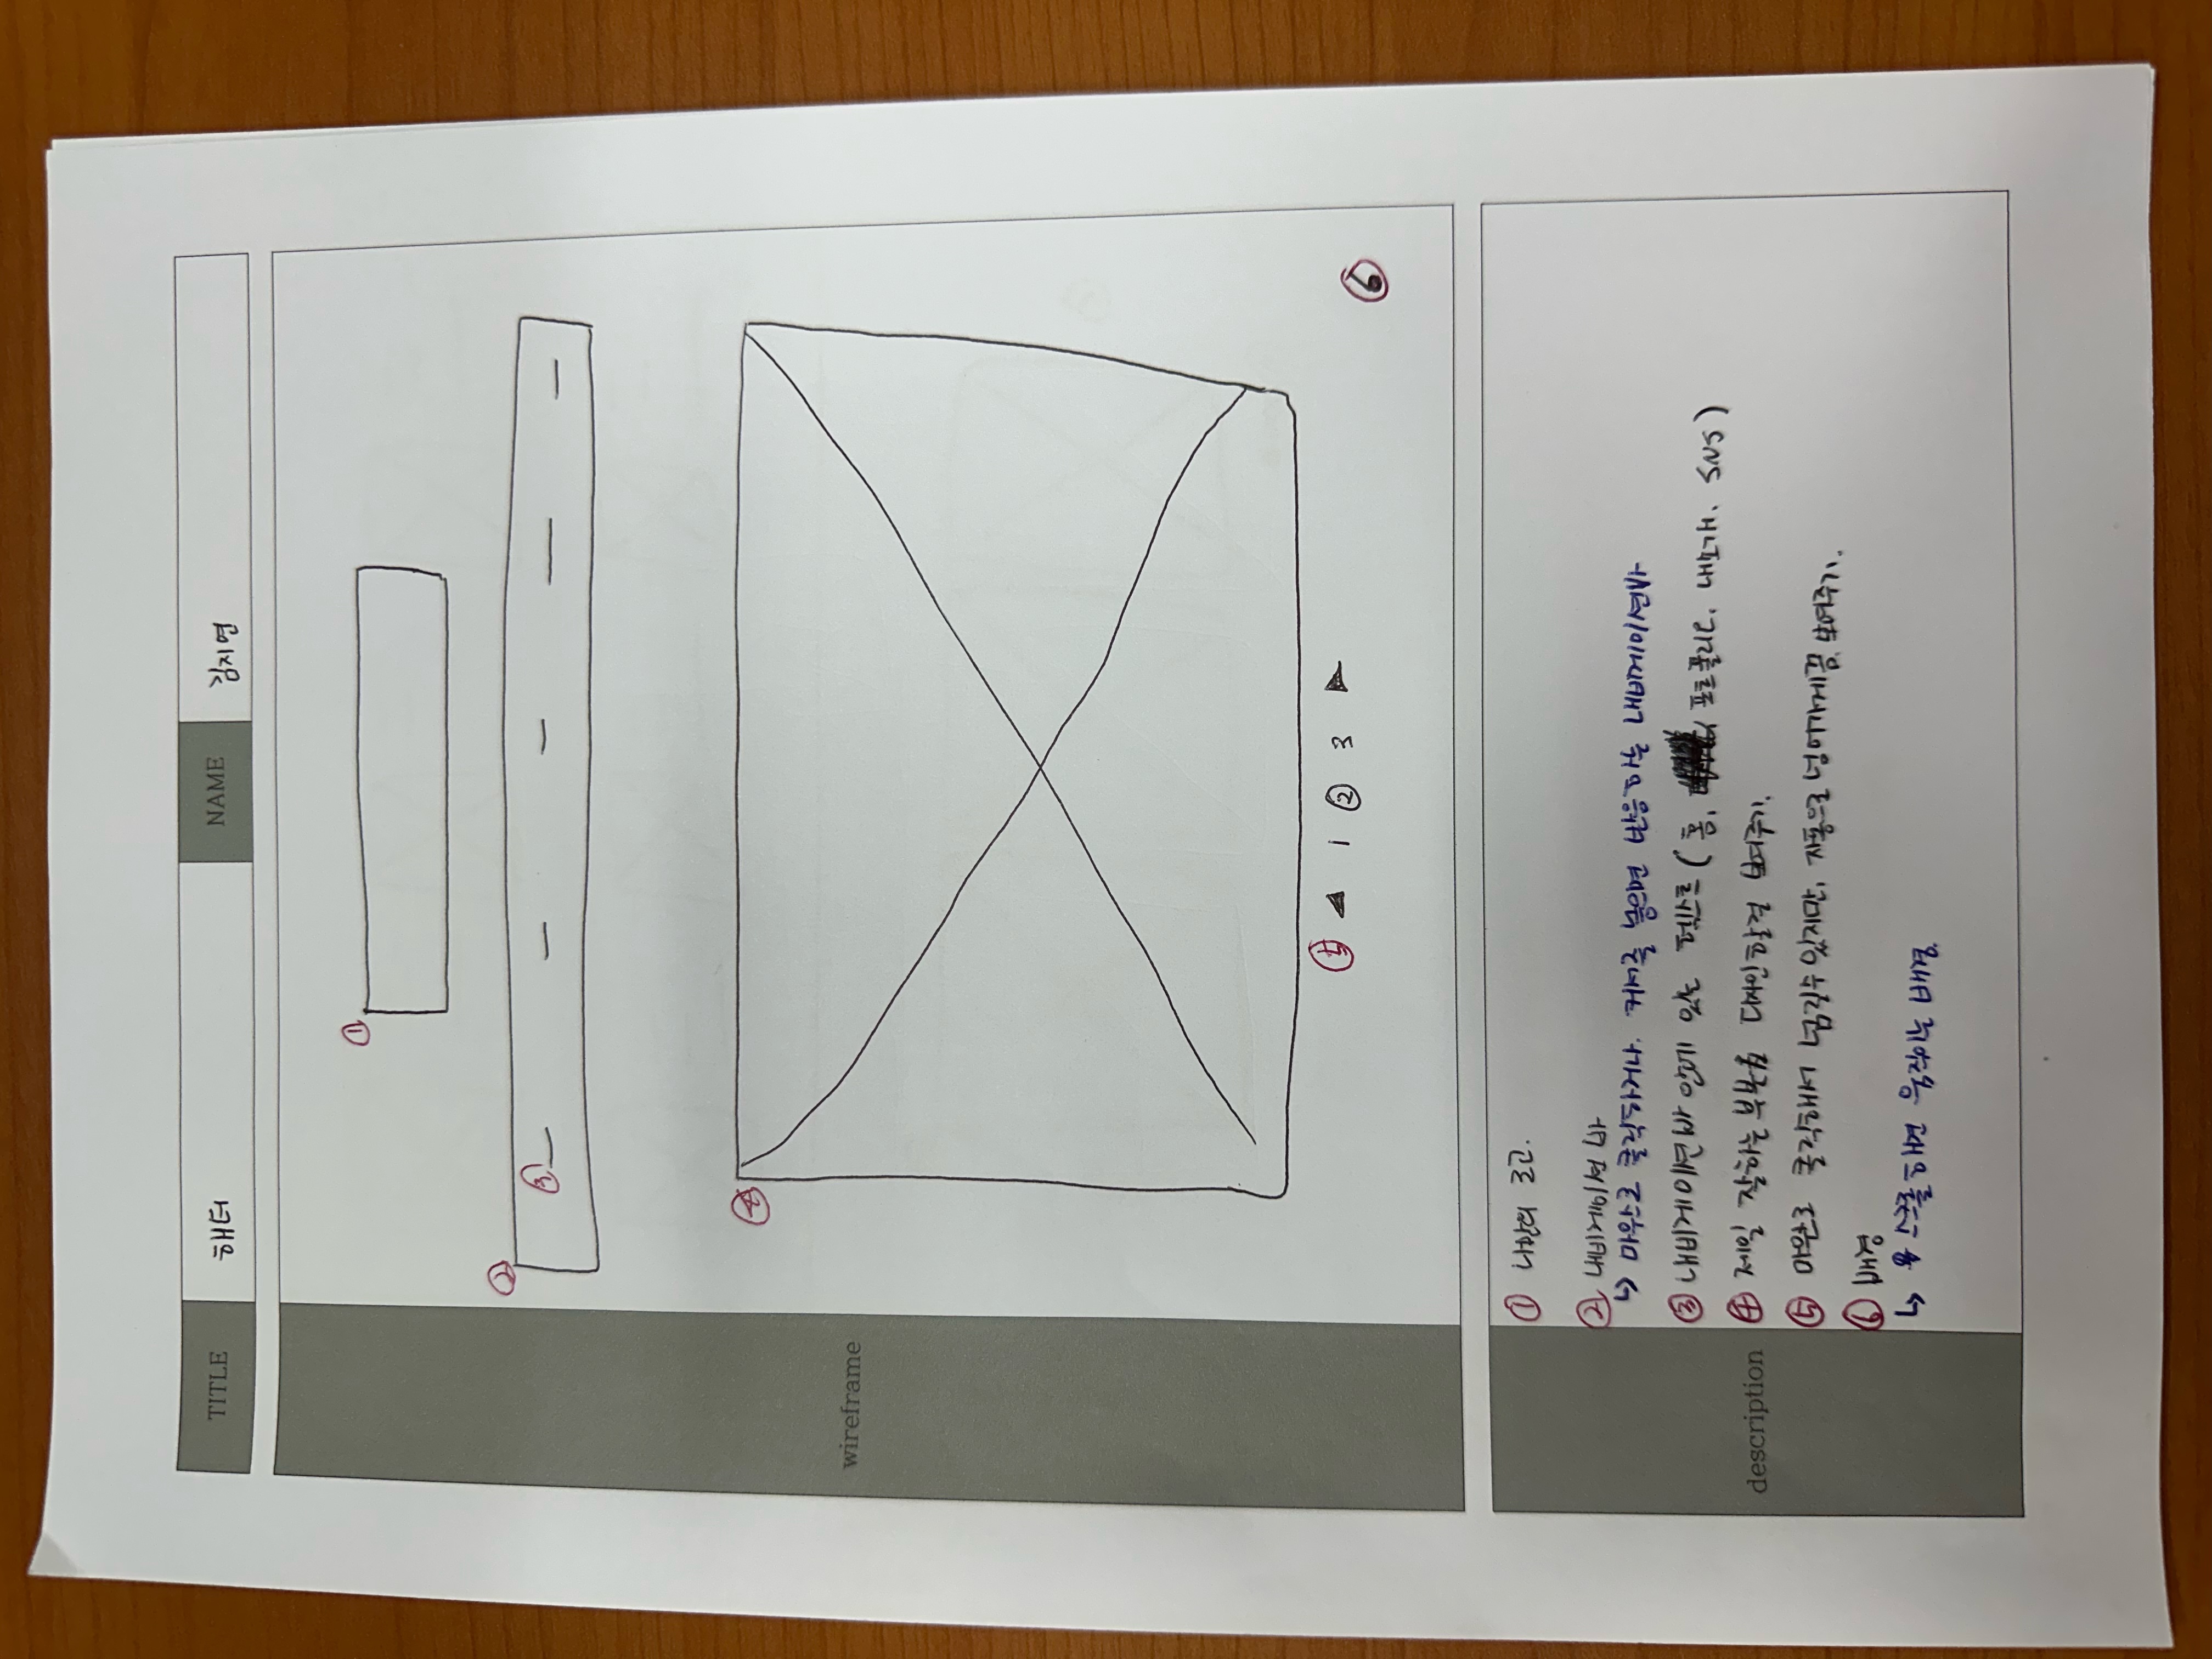 TITLE 해더 NAME 김지연
wireframe
①
②
③
④
⑤ ◀ 1 ② 3 ▶
⑥
description
① 나만의 로고.
② 내비게이션 바
↳ 마우스로 클릭하거나, 커서를 놓으면 반응하는 내비게이션바
③ 내비게이션바 안에 있는 텍스트 ( 홈, 포트폴리오, 내소개, SNS )
④ 제일 잘하는 부분을 디자인한걸 보여주기.
⑤ 클릭해서 넘길수 있지만, 자동으로 넘어가게끔 보여주기.
⑥ 배경
↳ 스크롤 하면 움직이는 배경.